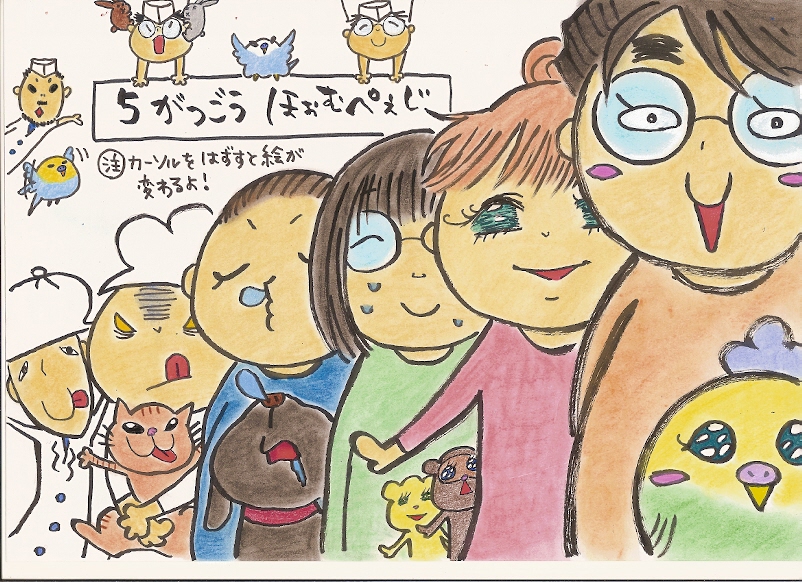 5がつごう ほぉむぺぇじ
注 カーソルをはずすと絵が
変わるよ!